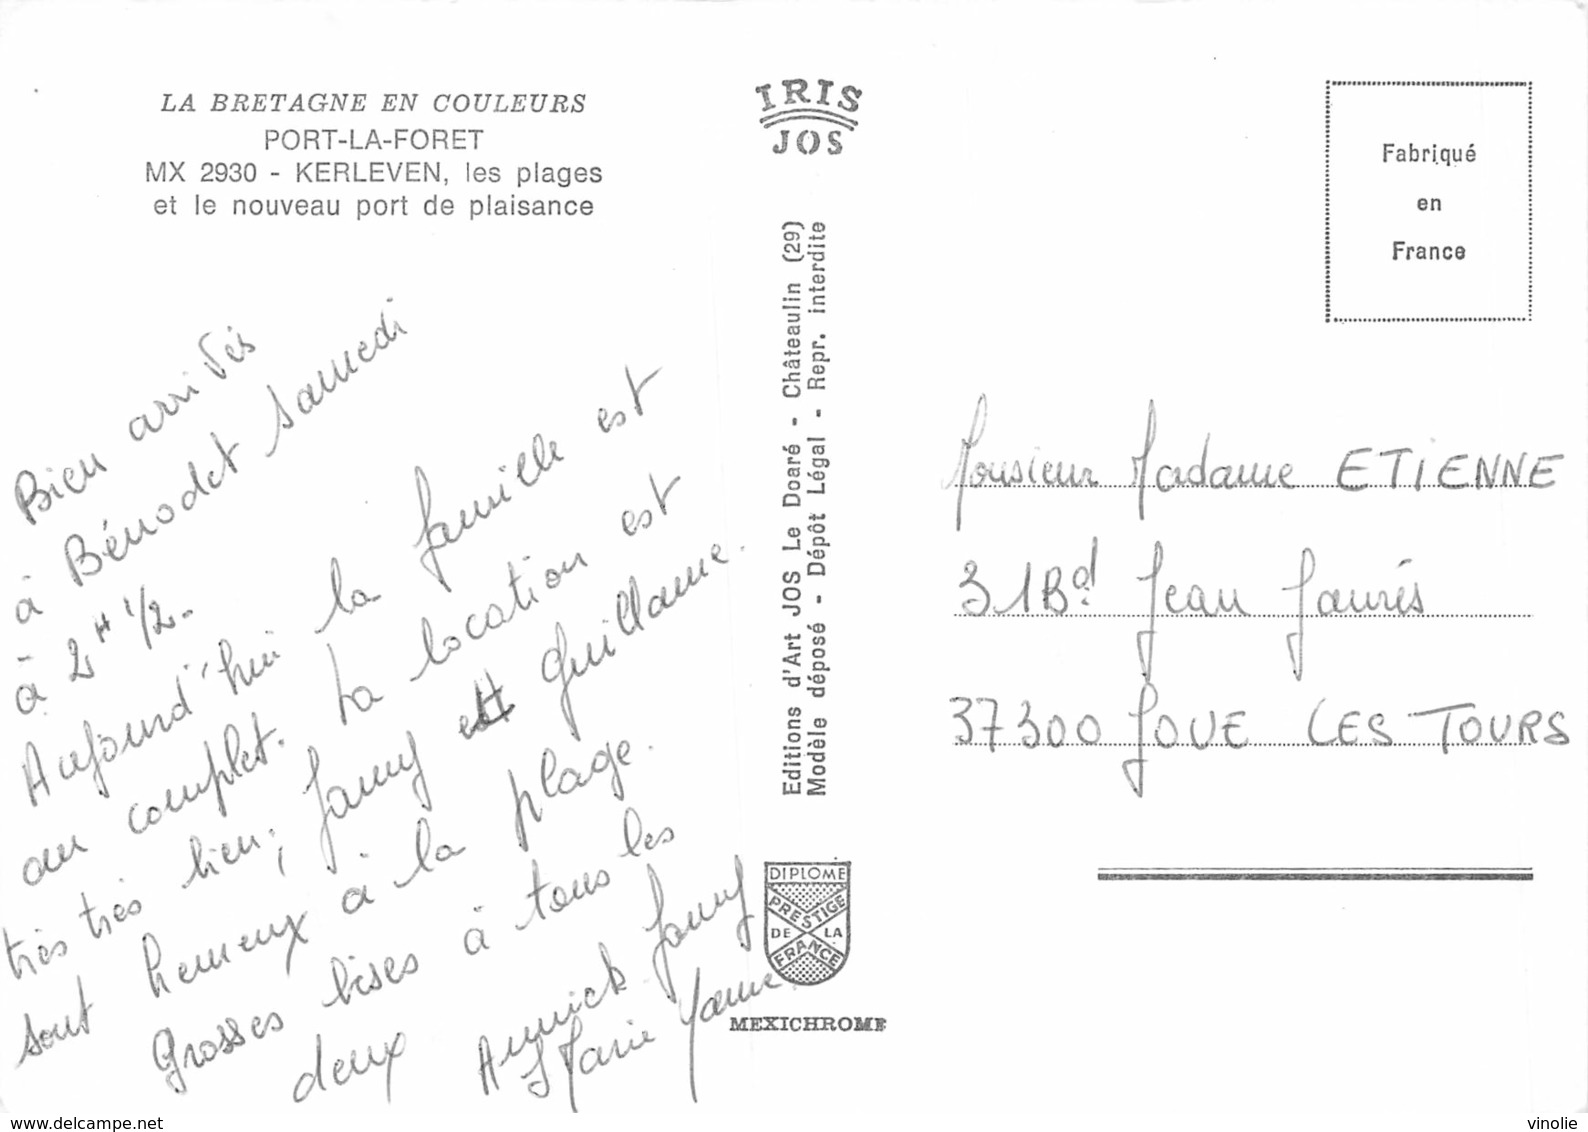 LA BRETAGNE EN COULEURS
PORT-LA-FORET
MX 2930 - KERLEVEN, les plages
et le nouveau port de plaisance
Bien arrivés
à Bénodet samedi
à 2H 1/2.
Aujourd'hui la famille est
au complet. La location est
très très bien; Fanny et Guillaume.
sont heureux à la plage.
Grosses bises à tous les
deux Annick Fanny
Marie
IRIS
JOS
Editions d'Art JOS Le Doaré - Châteaulin (29)
Modèle déposé - Dépôt Légal - Repr. interdite
DIPLOME
PRESTIGE
DE LA
FRANCE
MEXICHROME
Fabriqué
en
France
Monsieur Madame ETIENNE
31Bd Jean Jaurés
37300 JOUE LES TOURS
www.delcampe.net
vinolie